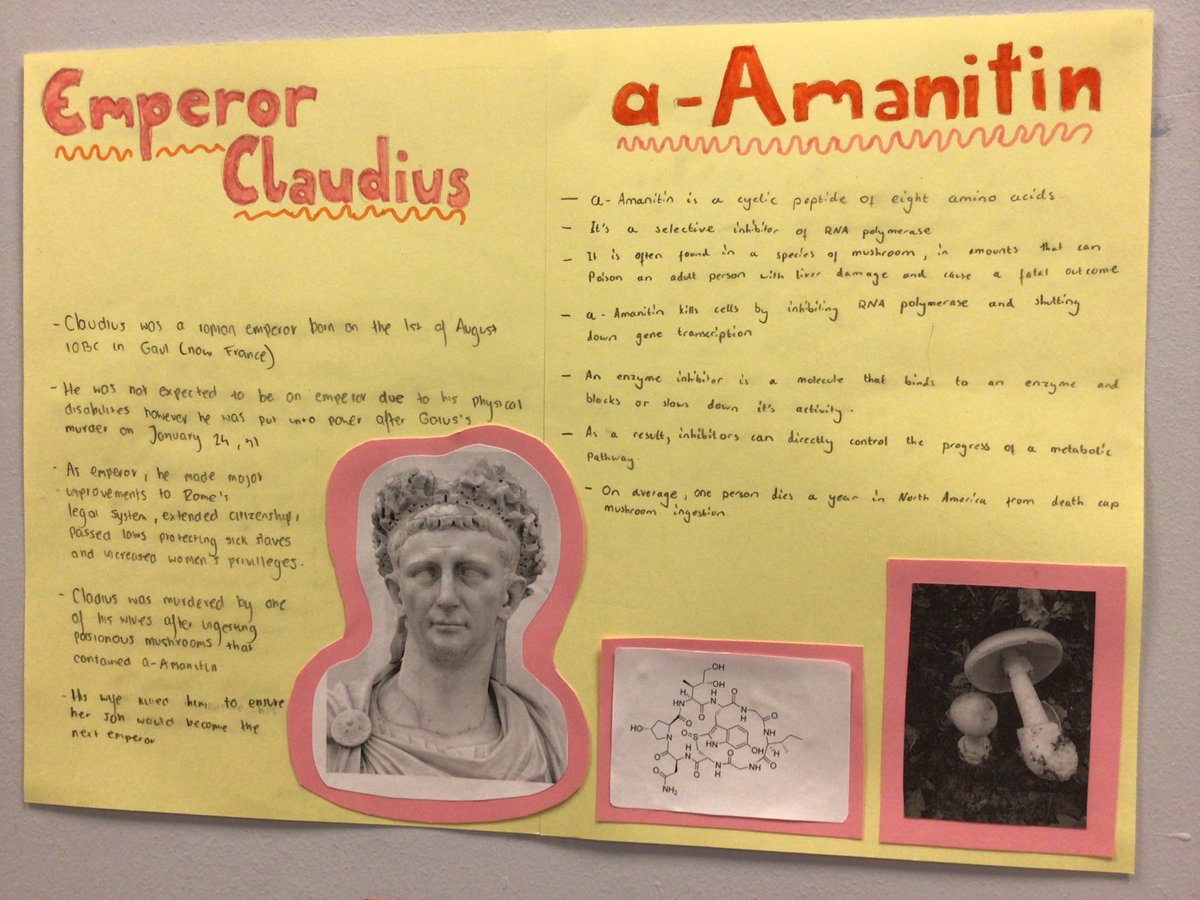 Emperor
Claudius
- Claudius was a roman emperor born on the 1st of August
10BC in Gaul (now France)
- He was not expected to be an emperor due to his physical
disabilites however he was put into power after Gaius's
murder on January 24, 41
- As emperor, he made major
improvements to Rome's
legal system, extended citizenship,
passed laws protecting sick slaves
and increased women's privilleges.
- Cladius was murdered by one
of his wives after ingesting
poisionous mushrooms that
contained a-Amanitin
- His wife killed him to ensure
her son would become the
next emperor
a-Amanitin
- a-Amanitin is a cyclic peptide of eight amino acids.
- It's a selective inhibitor of RNA polymerase
- It is often found in a species of mushroom, in amounts that can
poison an adult person with liver damage and cause a fatal outcome
- a-Amanitin kills cells by inhibiting RNA polymerase and shutting
down gene transcription
- An enzyme inhibitor is a molecule that binds to an enzyme and
blocks or slows down it's activity.
- As a result, inhibitors can directly control the progress of a metabolic
pathway
- On average, one person dies a year in North America from death cap
mushroom ingestion